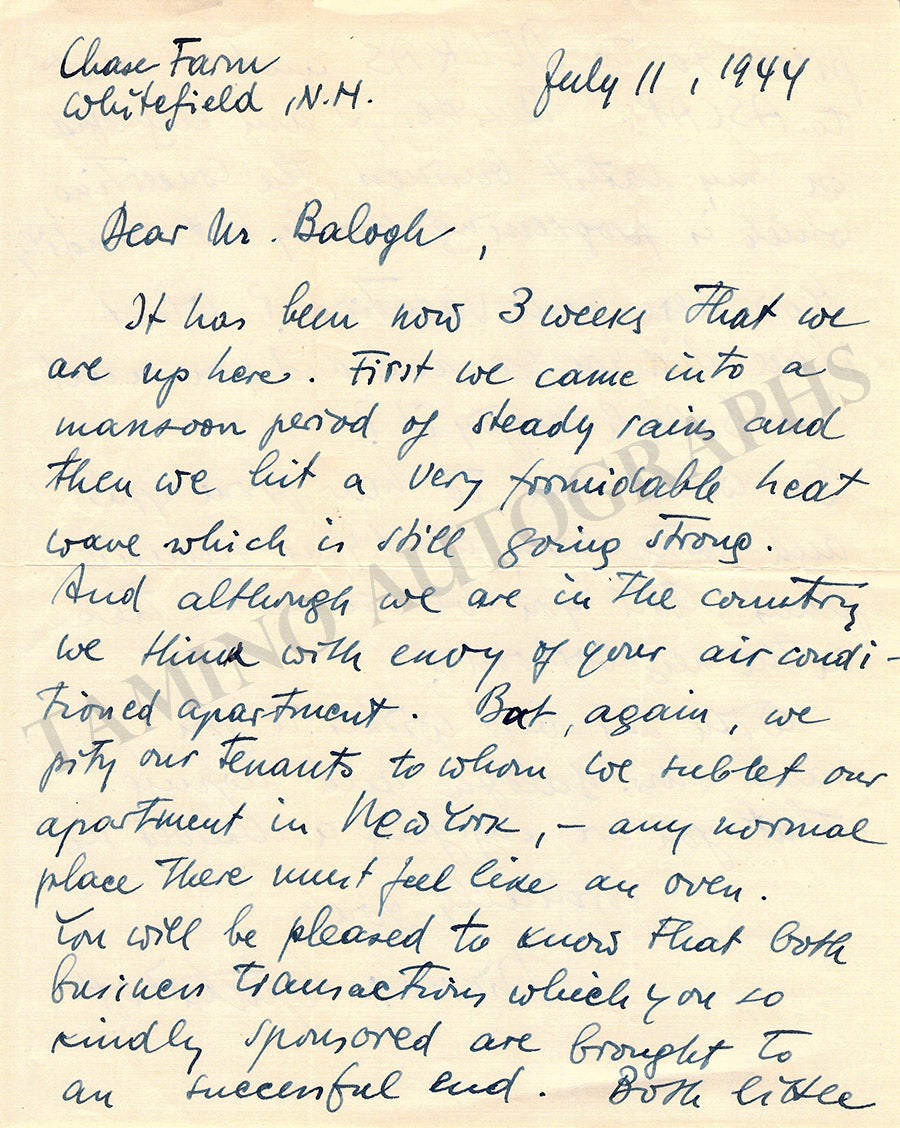 Chase Farm
Whitefield, N.H.
July 11, 1944
Dear Mr. Balogh,
It has been now 3 weeks that we
are up here. First we came into a
mansoon period of steady rains and
then we hit a very formidable heat
wave which is still going strong.
And although we are in the country
we think with envy of your air condi-
tioned apartment. But, again, we
pity our tenants to whom we sublet our
apartment in New York, – any normal
place there must feel like an oven.
You will be pleased to know that both
business transactions which you so
kindly sponsored are brought to
an successful end. Both little
TAMINO AUTOGRAPHS